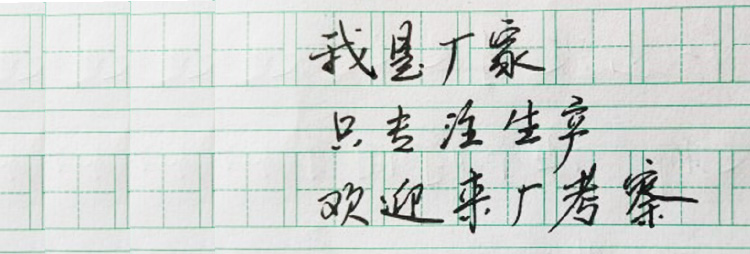 我是厂家
只专注生产
欢迎来厂考察